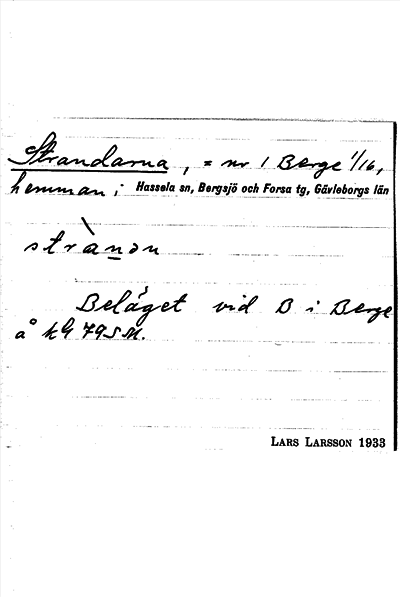 Strandarna, = nr 1 Berge 1/16,
hemman i Hassela sn, Bergsjö och Forsa tg, Gävleborgs län
stràn̲ən
Beläget vid B i Berge
å kG 79SM.
LARS LARSSON 1933